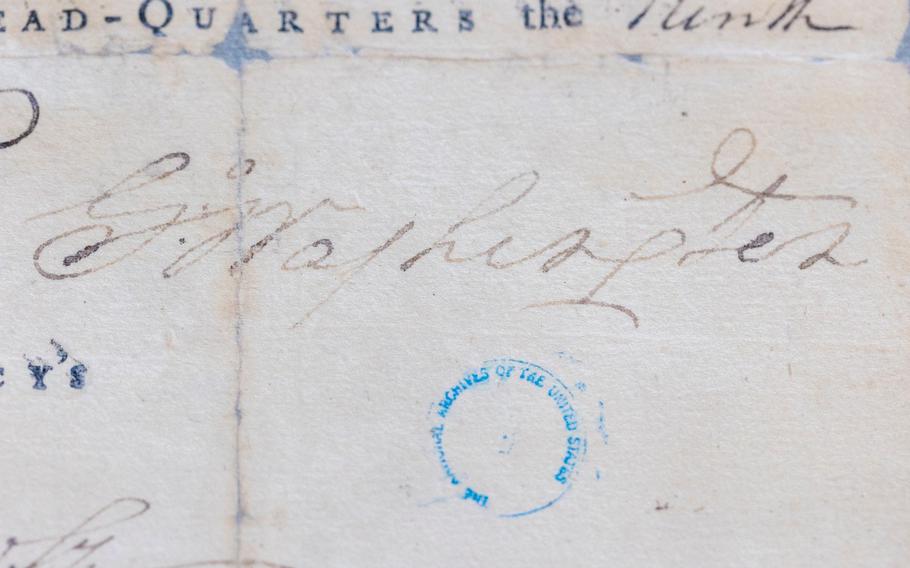 EAD-QUARTERS the Ninth
G:Washington
CY'S
THE NATIONAL ARCHIVES OF THE UNITED STATES